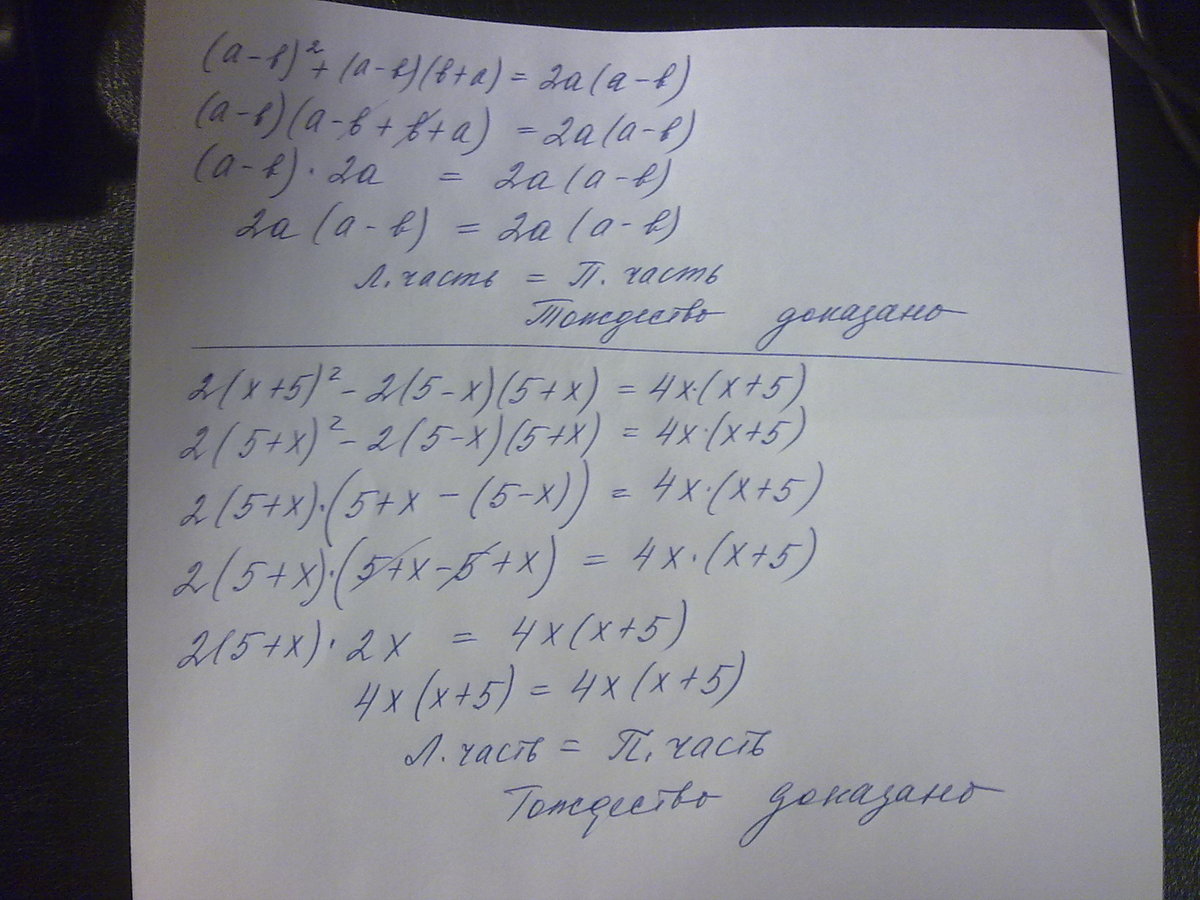 (a-в)² + (a-в)(в+a) = 2a(a-в)
(a-в)(a-в+в+a) = 2a(a-в)
(a-в)·2a = 2a(a-в)
2a(a-в) = 2a(a-в)
Л.часть = П.часть
Тождество доказано
2(x+5)² - 2(5-x)(5+x) = 4x·(x+5)
2(5+x)² - 2(5-x)(5+x) = 4x·(x+5)
2(5+x)·(5+x - (5-x)) = 4x·(x+5)
2(5+x)·(5+x-5+x) = 4x·(x+5)
2(5+x)·2x = 4x(x+5)
4x(x+5) = 4x(x+5)
Л.часть = П.часть
Тождество доказано